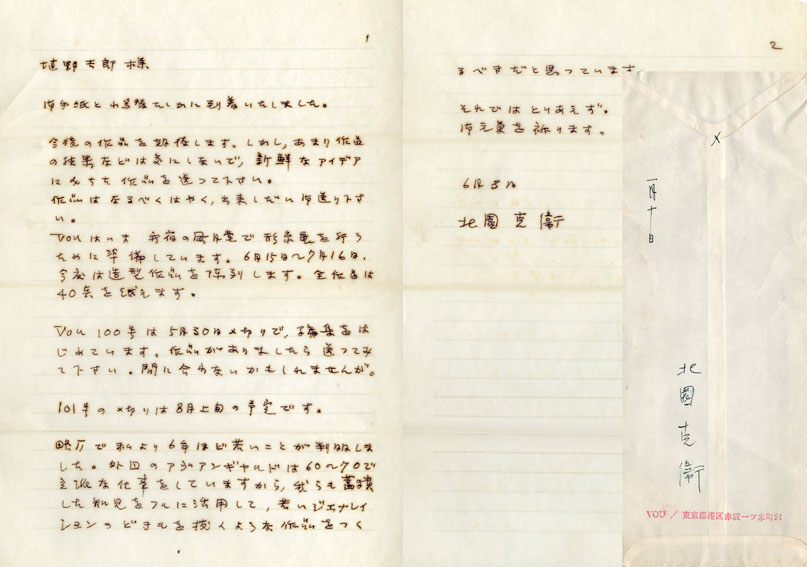 1
植野吉郎様
御手紙と
たしかに到着いたしました。
今後の作品を期待します。しかし、あまり作品
の結果などは気にしないで、新鮮なアイデア
にみちた作品を送って下さい。
作品はなるべくはやく、出来しだい御送り下さ
い。
VOUはいま 新宿の風月堂で形象展を行う
ために準備しています。6月15日〜7月16日。
今度は造型作品を陳列します。全作品は
40点を越えます。
VOU 100号は5月30日〆切りで、編集をは
じめています。作品がありましたら送ってみ
て下さい。間に合わないかもしれませんが。
101号の〆切りは8月上旬の予定です。
略歴で私より6年ほど若いことが判明しま
した。外国のアヴァンギャルドは60〜70で
立派な仕事をしていますから、我らも蓄積
した知見をフルに活用して、若いジェナレイ
ションのどぎもを抜くような作品をつく
2
るべきだと思っています
それではとりあえず。
御元気を祈ります。
6月3日
北園克衛
一月十日
北園克衛
VOU / 東京都港区赤坂一ツ木町51